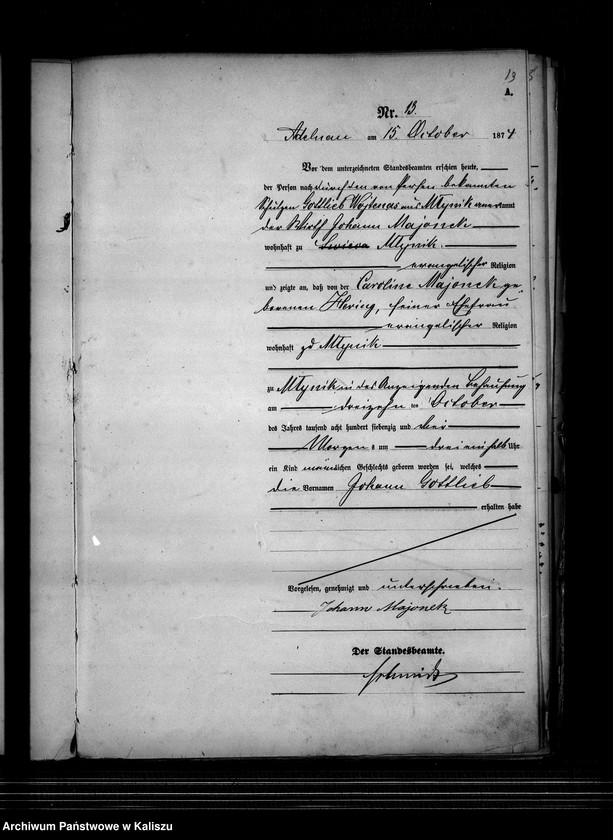 13 5
A.
Nr. 13.
Adelnau am 15. October 1874
Vor dem unterzeichneten Standesbeamten erschien heute,
der Person nach durch den von Person bekannten
Schulzen Gottlieb Wojtenas aus Młynik anerkannt
der Wirth Johann Majonek
wohnhaft zu Młynik.
evangelischer Religion
und zeigte an, daß von der Caroline Majonek ge
borenen Hering, seiner Ehefrau
evangelischer Religion
wohnhaft zu Młynik
zu Młynik in des Anzeigenden Behausung
am dreizehn ten October
des Jahres tausend acht hundert siebenzig und vier
Morgens um drei ein halb Uhr
ein Kind männlichen Geschlechts geboren worden sei, welches
die Vornamen Johann Gottlieb
erhalten habe
Vorgelesen, genehmigt und unterschrieben.
Johann Majonek
Der Standesbeamte.
Schmidt
Archiwum Państwowe w Kaliszu